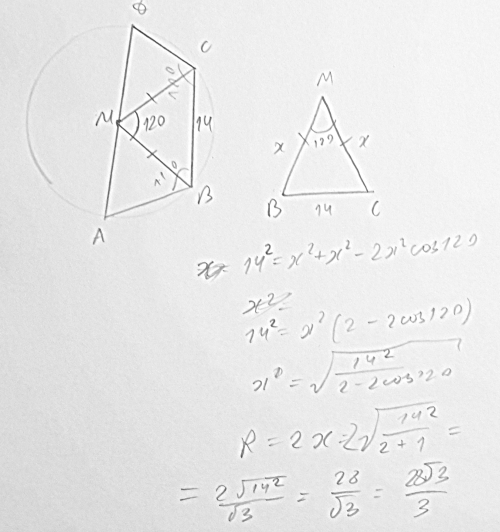 D
C
M
120
14
120
120
B
A
M
120
x
x
B
14
C
14² = x² + x² - 2x² cos 120
x² =
14² = x² (2 - 2cos 120)
x = √(14² / (2 - 2cos 120))
R = 2x = 2√(14² / (2 + 1)) =
= 2√14² / √3 = 28 / √3 = 28√3 / 3